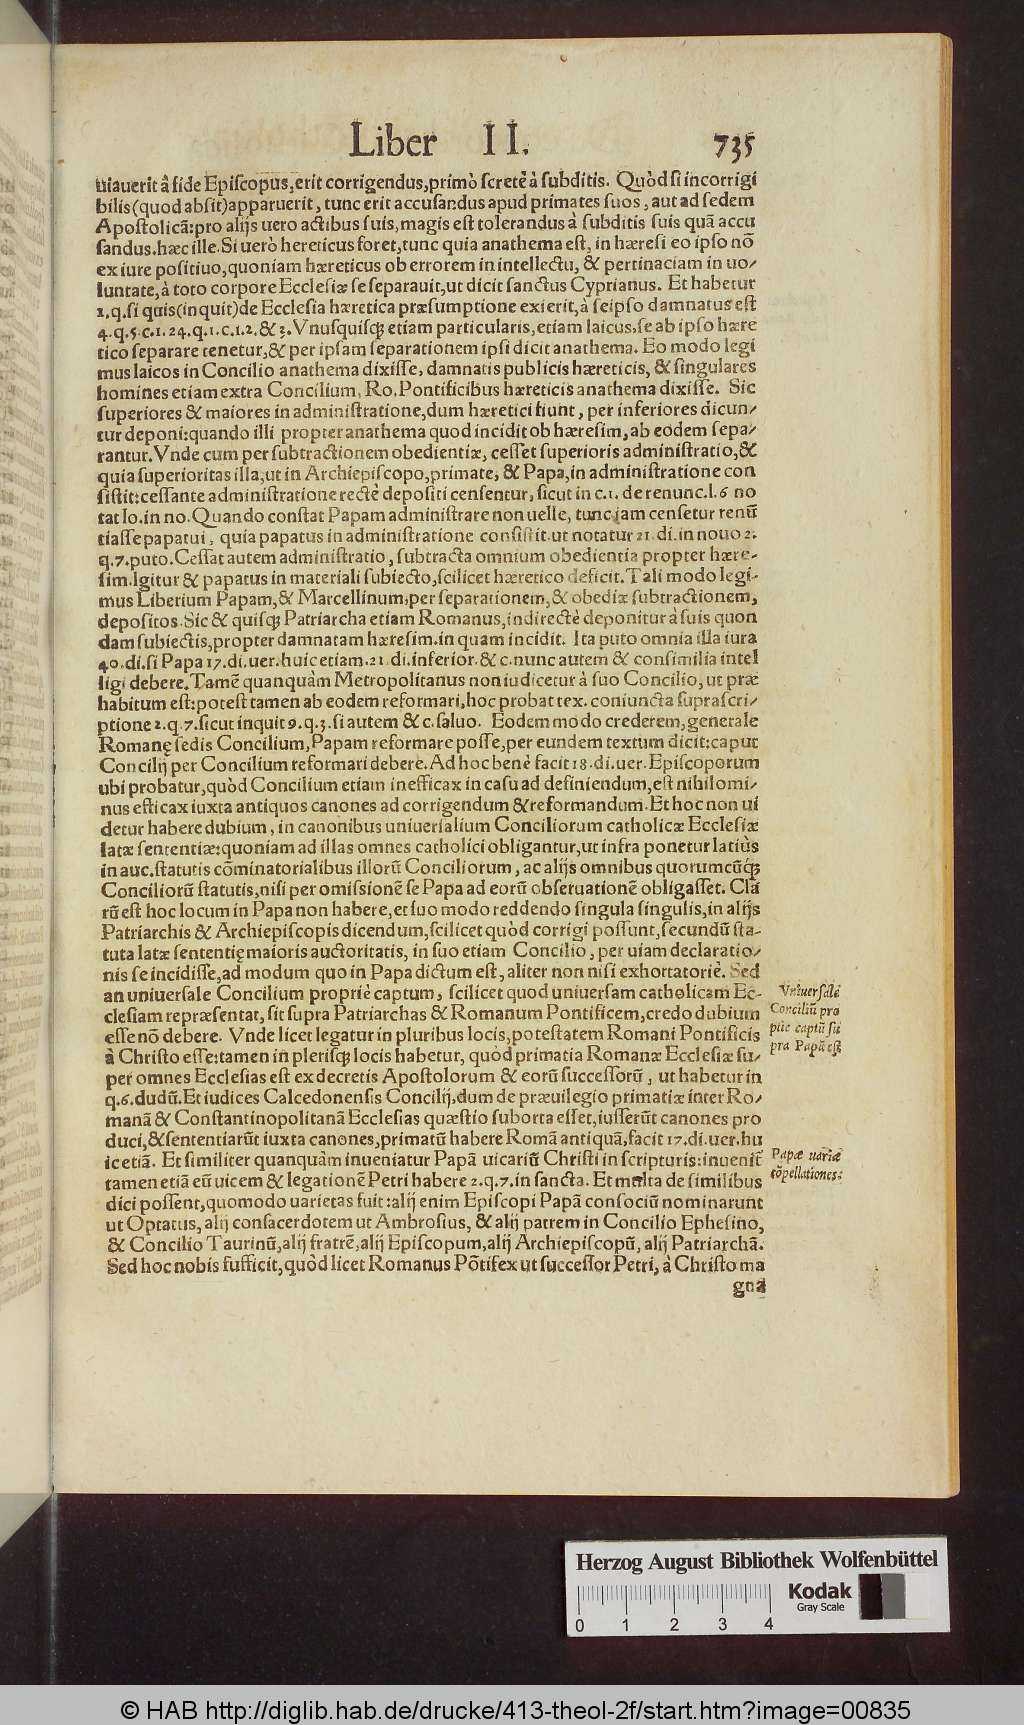 Liber II. 735
uiauerit â fide Episcopus, erit corrigendus, primò scretè à subditis. Quòd si incorrigi
bilis (quod absit) apparuerit, tunc erit accusandus apud primates suos, aut ad sedem
Apostolicã: pro alijs uero actibus suis, magis est tolerandus à subditis suis quã accu
sandus. hæc ille. Si uerò hereticus foret, tunc quia anathema est, in hæresi eo ipso nõ
ex iure positiuo, quoniam hæreticus ob errorem in intellectu, & pertinaciam in uo-
luntate, à toto corpore Ecclesiæ se separauit, ut dicit sanctus Cyprianus. Et habetur
1. q. si quis (inquit) de Ecclesia hæretica præsumptione exierit, à seipso damnatus est
4. q. 5. c. 1. 24. q. 1. c. 1. 2. & 3. Vnusquisq; etiam particularis, etiam laicus, se ab ipso hære
tico separare tenetur, & per ipsam separationem ipsi dicit anathema. Eo modo legi
mus laicos in Concilio anathema dixisse, damnatis publicis hæreticis, & singulares
homines etiam extra Concilium, Ro. Pontificibus hæreticis anathema dixisse. Sic
superiores & maiores in administratione, dum hæretici fiunt, per inferiores dicun-
tur deponi: quando illi propter anathema quod incidit ob hæresim, ab eodem sepa-
rantur. Vnde cum per subtractionem obedientiæ, cesset superioris administratio, &
quia superioritas illa, ut in Archiepiscopo, primate, & Papa, in administratione con
sistit: cessante administratione rectè depositi censentur, sicut in c. 1. de renunc. l. 6 no
tat Io. in no. Quando constat Papam administrare non uelle, tunc iam censetur renũ
tiasse papatui, quia papatus in administratione consistit. ut notatur 21. di. in nouo 2.
q. 7. puto. Cessat autem administratio, subtracta omnium obedientia propter hære-
sim. Igitur & papatus in materiali subiecto, scilicet hæretico deficit. Tali modo legi-
mus Liberium Papam, & Marcellinum, per separationem, & obediæ subtractionem,
depositos. Sic & quisq; Patriarcha etiam Romanus, indirectè deponitur à suis quon
dam subiectis, propter damnatam hæresim. in quam incidit. Ita puto omnia illa iura
40. di. si Papa 17. di. uer. huic etiam. 21. di. inferior. & c. nunc autem & consimilia intel
ligi debere. Tamẽ quanquàm Metropolitanus non iudicetur à suo Concilio, ut præ
habitum est: potest tamen ab eodem reformari, hoc probat tex. coniuncta suprascri-
ptione 2. q. 7. sicut inquit 9. q. 3. si autem & c. saluo. Eodem modo crederem, generale
Romanę sedis Concilium, Papam reformare posse, per eundem textum dicit: caput
Concilij per Concilium reformari debere. Ad hoc benè facit 18. di. uer. Episcoporum
ubi probatur, quòd Concilium etiam inefficax in casu ad definiendum, est nihilomi-
nus efficax iuxta antiquos canones ad corrigendum & reformandum. Et hoc non ui
detur habere dubium, in canonibus uniuersalium Conciliorum catholicæ Ecclesiæ
latæ sententiæ: quoniam ad illas omnes catholici obligantur, ut infra ponetur latiùs
in auc. statutis cõminatorialibus illorũ Conciliorum, ac alijs omnibus quorumcũq;
Conciliorũ statutis, nisi per omissionẽ se Papa ad eorũ obseruationẽ obligasset. Cla
rũ est hoc locum in Papa non habere, et suo modo reddendo singula singulis, in alijs
Patriarchis & Archiepiscopis dicendum, scilicet quòd corrigi possunt, secundũ sta-
tuta latæ sententię maioris auctoritatis, in suo etiam Concilio, per uiam declaratio-
nis se incidisse, ad modum quo in Papa dictum est, aliter non nisi exhortatoriè. Sed
an uniuersale Concilium propriè captum, scilicet quod uniuersam catholicam Ec-
clesiam repræsentat, sit supra Patriarchas & Romanum Pontificem, credo dubium
esse nõ debere. Vnde licet legatur in pluribus locis, potestatem Romani Pontificis
à Christo esse: tamen in plerisq; locis habetur, quòd primatia Romanæ Ecclesiæ su-
per omnes Ecclesias est ex decretis Apostolorum & eorũ successorũ, ut habetur in
q. 6. dudũ. Et iudices Calcedonensis Concilij, dum de præuilegio primatiæ inter Ro-
manã & Constantinopolitanã Ecclesias quæstio suborta esset, iusserũt canones pro
duci, & sententiarũt iuxta canones, primatũ habere Romã antiquã, facit 17. di. uer. hu
ic etiã. Et similiter quanquàm inueniatur Papã uicariũ Christi in scripturis: inuenit
tamen etiã eũ uicem & legationẽ Petri habere 2. q. 7. in sancta. Et multa de similibus
dici possent, quomodo uarietas fuit: alij enim Episcopi Papã consociũ nominarunt
ut Optatus, alij consacerdotem ut Ambrosius, & alij patrem in Concilio Ephesino,
& Concilio Taurinũ, alij fratrẽ, alij Episcopum, alij Archiepiscopũ, alij Patriarchã.
Sed hoc nobis sufficit, quòd licet Romanus Põtifex ut successor Petri, à Christo ma
gna
Vniuersale
Conciliũ pro
priè captũ su
pra Papã est
Papæ uariæ
cõpellationes:
Herzog August Bibliothek Wolfenbüttel
0 1 2 3 4
Kodak
Gray Scale
© HAB http://diglib.hab.de/drucke/413-theol-2f/start.htm?image=00835